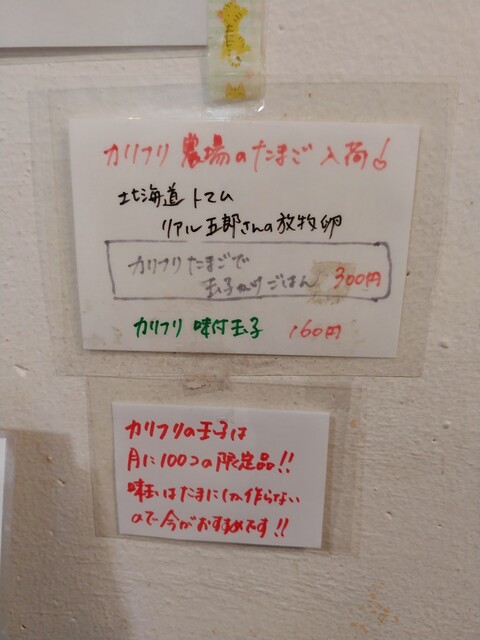 カリフリ 農場のたまご 入荷
北海道 トマム
リアル五郎さんの放牧卵
カリフリたまごで
玉子かけごはん 300円
カリフリ 味付玉子 160円
カリフリの玉子は
月に100コの限定品!!
味玉はたまにしか作らない
ので今がおすすめです!!